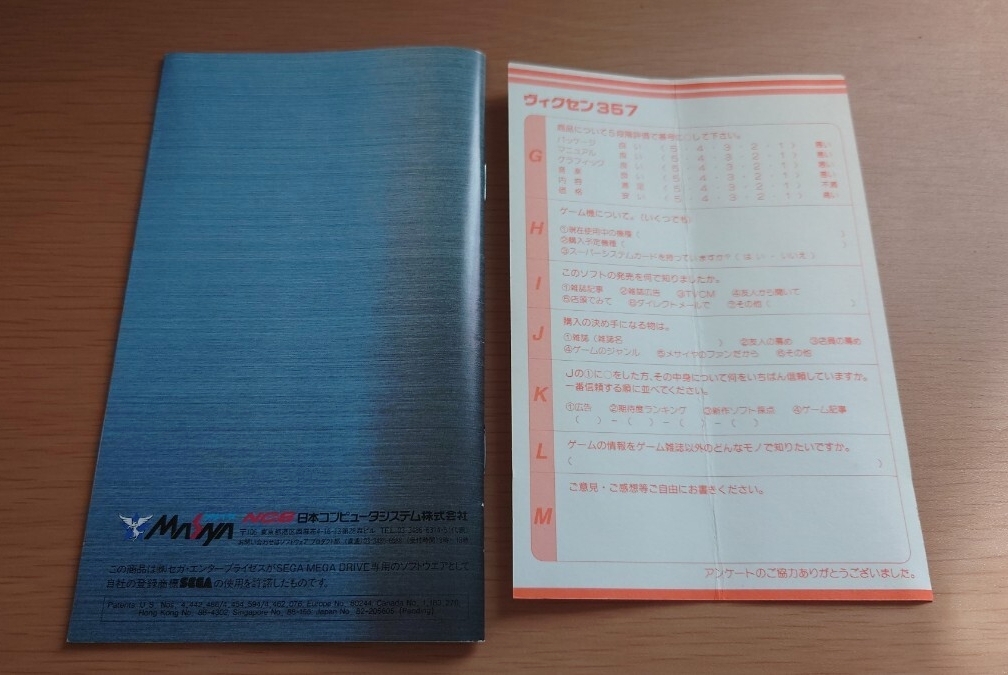 Masaya NCS 日本コンピュータシステム株式会社
この商品は㈱セガ・エンタープライゼスがSEGA MEGA DRIVE専用のソフトウエアとして
自社の登録商標SEGAの使用を許諾したものです。
Patents: U.S. Nos.
Hong Kong No. Singapore No. Japan No. (Pending)
ヴィクセン357
G
商品について5段階評価で番号に○して下さい。
パッケージ 良い (5・4・3・2・1) 悪い
マニュアル 良い (5・4・3・2・1) 悪い
グラフィック 良い (5・4・3・2・1) 悪い
音楽 良い (5・4・3・2・1) 悪い
内容 満足 (5・4・3・2・1) 不満
価格 安い (5・4・3・2・1) 高い
H
ゲーム機について。(いくつでも)
①現在使用中の機種( )
②購入予定機種( )
③スーパーシステムカードを持っていますか?(はい・いいえ)
I
このソフトの発売を何で知りましたか。
①雑誌記事 ②雑誌広告 ③TVCM ④友人から聞いて
⑤店頭でみて ⑥ダイレクトメールで ⑦その他( )
J
購入の決め手になる物は。
①雑誌(雑誌名 ) ②友人の薦め ③店員の薦め
④ゲームのジャンル ⑤メサイヤのファンだから ⑥その他
K
Jの①に○をした方、その中身について何をいちばん信頼していますか。
一番信頼する順に並べてください。
①広告 ②期待度ランキング ③新作ソフト採点 ④ゲーム記事
( )-( )-( )-( )
L
ゲームの情報をゲーム雑誌以外のどんなモノで知りたいですか。
( )
M
ご意見・ご感想等ご自由にお書きください。
アンケートのご協力ありがとうございました。